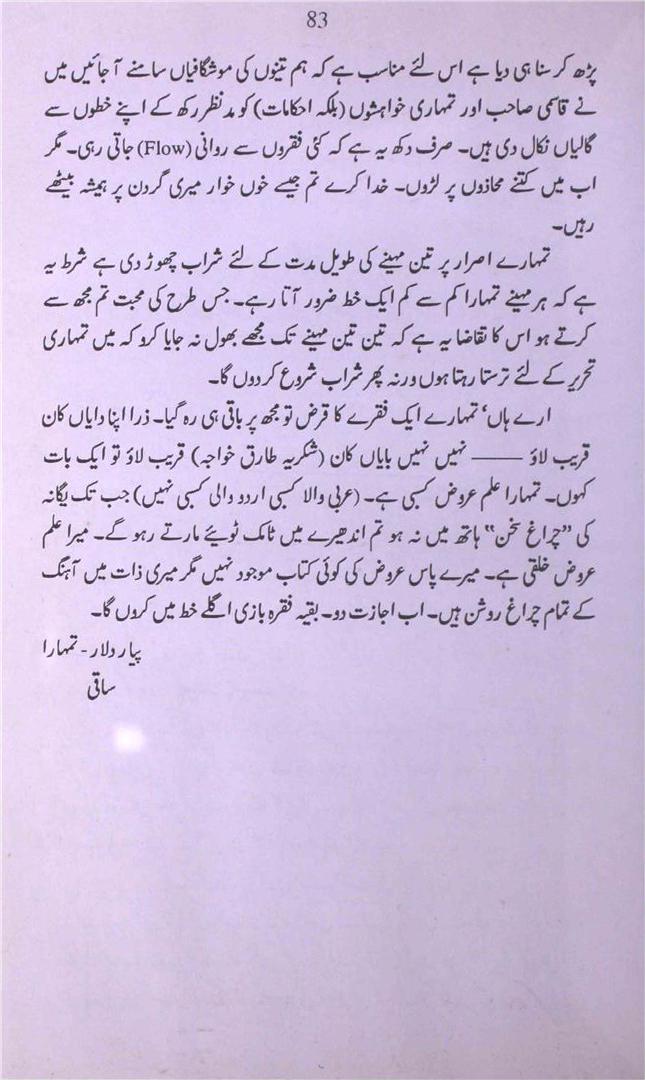 83
پڑھ کر سنا ہی دیا ہے اس لئے مناسب ہے کہ ہم تینوں کی موشگافیاں سامنے آ جائیں میں
نے قاسمی صاحب اور تمہاری خواہشوں (بلکہ احکامات) کو مد نظر رکھ کے اپنے خطوں سے
گالیاں نکال دی ہیں۔ صرف دکھ یہ ہے کہ کئی فقروں سے روانی (Flow) جاتی رہی۔ مگر
اب میں کتنے محاذوں پر لڑوں۔ خدا کرے تم جیسے خوں خوار میری گردن پر ہمیشہ بیٹھے
رہیں۔
تمہارے اصرار پر تین مہینے کی طویل مدت کے لئے شراب چھوڑ دی ہے شرط یہ
ہے کہ ہر مہینے تمہارا کم سے کم ایک خط ضرور آتا رہے۔ جس طرح کی محبت تم مجھ سے
کرتے ہو اس کا تقاضا یہ ہے کہ تین تین مہینے تک مجھے بھول نہ جایا کرو کہ میں تمہاری
تحریر کے لئے ترستا رہتا ہوں ورنہ پھر شراب شروع کر دوں گا۔
ارے ہاں‘ تمہارے ایک فقرے کا قرض تو مجھ پر باقی ہی رہ گیا۔ ذرا اپنا دایاں کان
قریب لاؤ —— نہیں نہیں بایاں کان (شکریہ طارق خواجہ) قریب لاؤ تو ایک بات
کہوں۔ تمہارا علم عروض کسبی ہے۔ (عربی والا کسبی اردو والی کسبی نہیں) جب تک یگانہ
کی ”چراغ سخن“ ہاتھ میں نہ ہو تم اندھیرے میں ٹامک ٹوئیے مارتے رہو گے۔ میرا علم
عروض خلقی ہے۔ میرے پاس عروض کی کوئی کتاب موجود نہیں مگر میری ذات میں آہنگ
کے تمام چراغ روشن ہیں۔ اب اجازت دو۔ بقیہ فقرہ بازی اگلے خط میں کروں گا۔
پیار دلار - تمہارا
ساقی